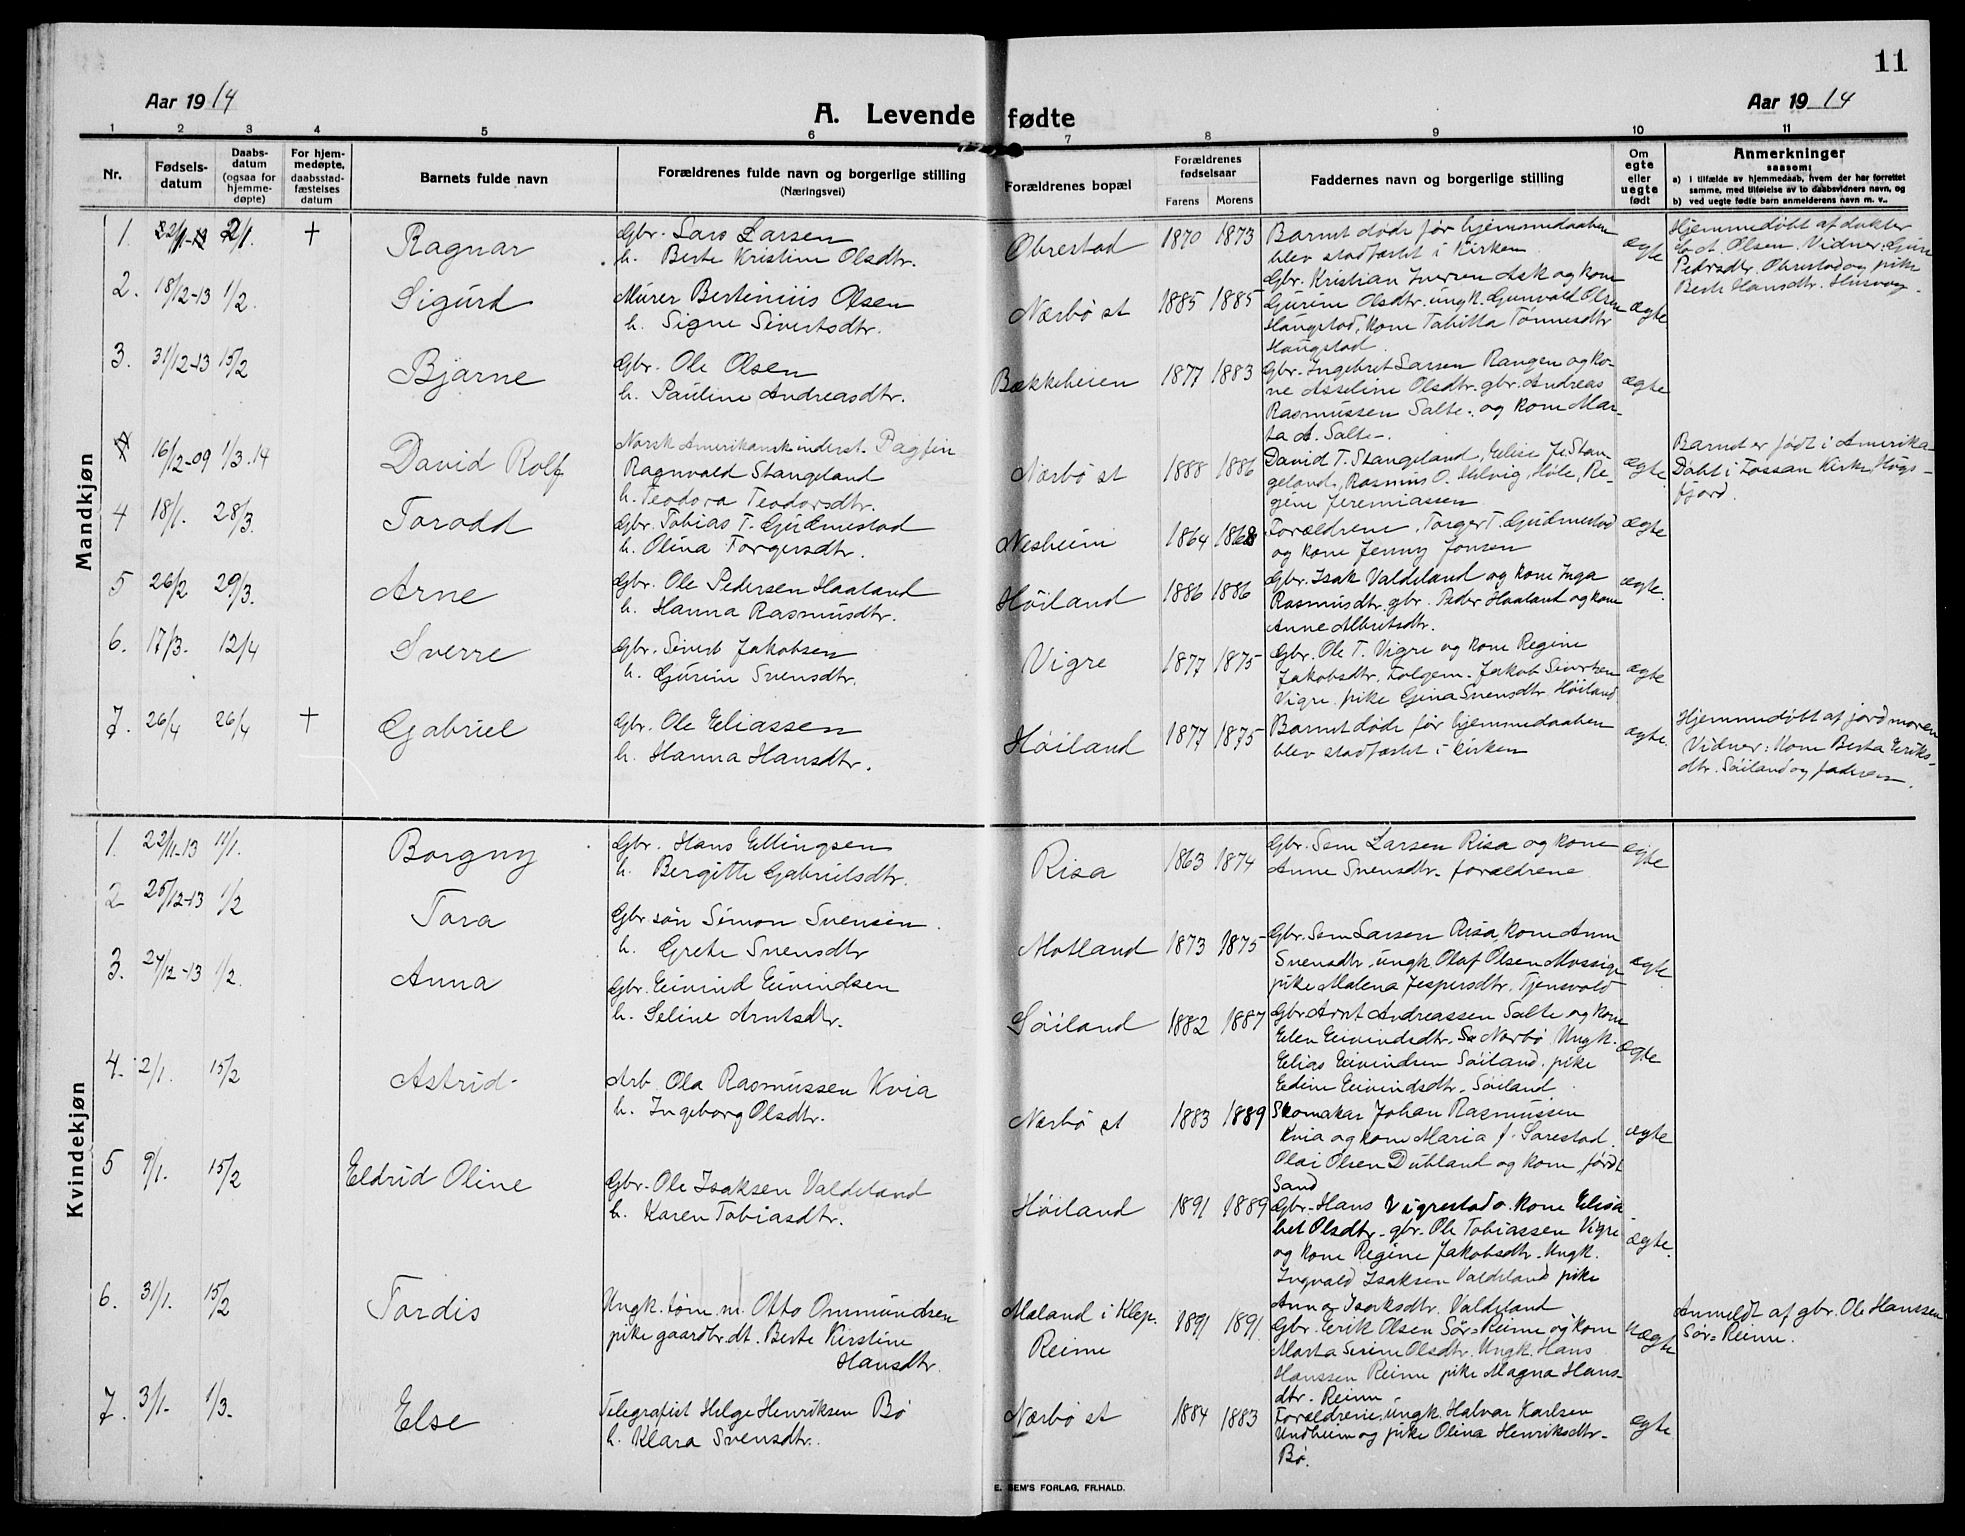 11
Aar 1914
A. Levende fødte
Aar 1914
1 2 3 4 5 6 7 8 9 10 11
Nr.
Fødsels-
datum
Daabs-
datum
(ogsaa for
hjemme-
døpte)
For hjem-
medøpte,
daabsstad-
fæstelses
datum
Barnets fulde navn
Forældrenes fulde navn og borgerlige stilling
(Næringsvei)
Forældrenes bopæl
Forældrenes
fødselsaar
Farens Morens
Faddernes navn og borgerlige stilling
Om
egte
eller
uegte
født
Anmerkninger
saasom:
a) i tilfælde av hjemmedaab, hvem der har forrettet
samme, med tilføielse av to daabsvidners navn, og
b) ved uegte fødte barn anmelderens navn m. v..
Mandkjøn
1. 2/1. + Ragnar
Gbr. Lars Larsen
h. Berte Kristine Olsdtr.
Obrestad 1870 1873
Barnet døde før hjemmedaaben
blev stadfæstet i Kirken
ægte
Hjemmedøbt af doktor
Olsen. Vidner:
Pedersdtr. Obrestad og pike
Berte Hansdtr.
2. 18/12-13 1/2. Sigurd
Murer Bertinius Olsen
h. Signe Sivertsdtr.
Nærbø st 1885 1885
Gbr. Kristian Iversen Ask og kone
Gurine Olsdtr. ungk. Gunvald Olsen
Haugstad, kone Tabitta Tønnesdtr
Haugstad
ægte
3. 31/12-13 15/2 Bjarne
Gbr. Ole Olsen
h. Pauline Andreasdtr.
Bækkeheien 1877 1883
Gbr. Ingebret Larsen Rangen og ko-
ne Asseline Olsdtr. gbr. Andreas
Rasmussen Salte. og kone Mar-
ta A. Salte.
ægte
16/12-09 1/3.14 David Rolf
Norsk Amerikansk
Ragnvald Stangeland
h. Teodora Teodorsdtr.
Nærbø st 1888 1886
David T. Stangeland, Elise J. Stan-
geland, Rasmus O. Hole, Re-
gine Jeremiassen
ægte
Barnet er født i Amerika
Døbt i Fossan Kirke, Høgs-
fjord.
4 18/1. 28/3. Torodd
Gbr. Tobias T. Gudmestad
h. Olina Torgersdtr.
Nesheim 1864 1868
Forældrene, Torger T. Gudmestad
og kone Jenny Jonsen
ægte
5 26/2 29/3. Arne
Gbr. Ole Pedersen Haaland
h. Hanna Rasmusdtr.
Høiland 1886 1886
Gbr. Isak Valdeland og kone Inga
Rasmusdtr. gbr. Peder Haaland og kone
Anne Albertsdtr.
ægte.
6. 17/3. 12/4 Sverre
Gbr. Sivert Jakobsen
h. Gurine Svensdtr.
Vigre 1877 1875
Gbr. Ole T. Vigre og kone Regine
Jakobsdtr. Folgem. Jakob Sivertsen
Vigre, pike Gina Svensdtr Høiland
ægte
7. 26/4 26/4 + Gabriel
Gbr. Ole Eliassen
h. Hanna Hansdtr.
Høiland 1877 1875
Barnet døde før hjemmedaaben
blev stadfæstet i kirken
ægte.
Hjemmedøbt af jordmoren
Vidner: Kone Berta Eriks-
dtr. Søiland og faderen.
Kvindekjøn
1. 22/11-13 11/1. Borgny
Gbr. Hans Ellingsen
h. Bergitte Gabrielsdtr.
Risa 1863 1874
Gbr. Sem Larsen Risa og kone
Anne Svensdtr. forældrene
ægte
2 25/12-13 1/2 Tora
Gbr søn Simon Svensen.
h. Grete Svensdtr
Motland 1873 1875
Gbr. Sem Larsen Risa, kone Anne
Svensdtr, ungk. Olaf Olsen Mossige
pike Malena Jespersdtr. Tjensvold
ægte
3. 27/12-13 1/2. Anna
Gbr. Eivind Eivindsen
h. Seline Arntsdtr.
Søiland 1882 1887
Gbr Arnt Andreassen Salte og kone
Elen Eivindsdtr. Nærbø Ungk.
Elias Eivindsen Søiland, pike
Edine Eivindsdtr. Søiland.
ægte
4. 2/1. 15/2 Astrid
Arb. Ola Rasmussen Kvia
h. Ingeborg Olsdtr.
Nærbø st 1883 1889
Skomakar Johan Rasmussen
Kvia og kone Maria f. Sarestad.
Olai Olsen Dubland og kone, født
Sand
ægte
5 9/1. 15/2 Eldrid Oline
Gbr. Ole Isaksen Valdeland
h. Karen Tobiasdtr.
Høiland 1891 1889
Gbr. Hans Vigrestad o. kone Elisa
bet Olsdtr. gbr. Ole Tobiassen Vigre
og kone Regine Jakobsdtr. Ungk.
Ingvald Isaksen Valdeland pike
Anna Isaksdtr. Valdeland
ægte.
6. 31/1. 15/2 Tordis
Ungk. tøm. m. Otto Ommundsen
pike gaardbr.dt. Berte Kirstine
Hansdtr.
Maland i Klep.
Reime
1891 1891
Gbr. Erik Olsen Sør=Reime og kone
Marta Serine Olsdtr. Ungk. Hans
Hanssen Reime pike Magna Hans-
dtr. Reime.
uægte
Anmeldt af gbr. Ole Hanssen
Sør=Reime.
7. 3/1. 1/3. Else
Telegrafist Helge Henriksen Bø
h. Klara Svensdtr.
Nærbø st 1884 1883
Forældrene, ungk. Halvar Karlsen
Undheim og pike Olina Henriksdtr.
Bø.
ægte
E. SEM'S FORLAG, FR.HALD.